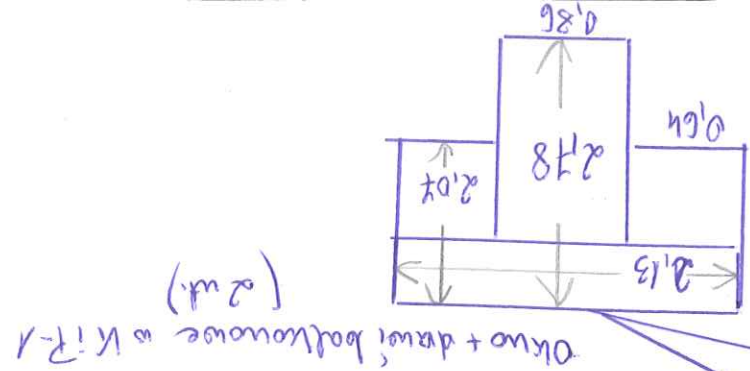 Okno + drzwi balkonowe w KiP-1
(2 szt.)
2,13
2,07
2,78
0,64
0,86